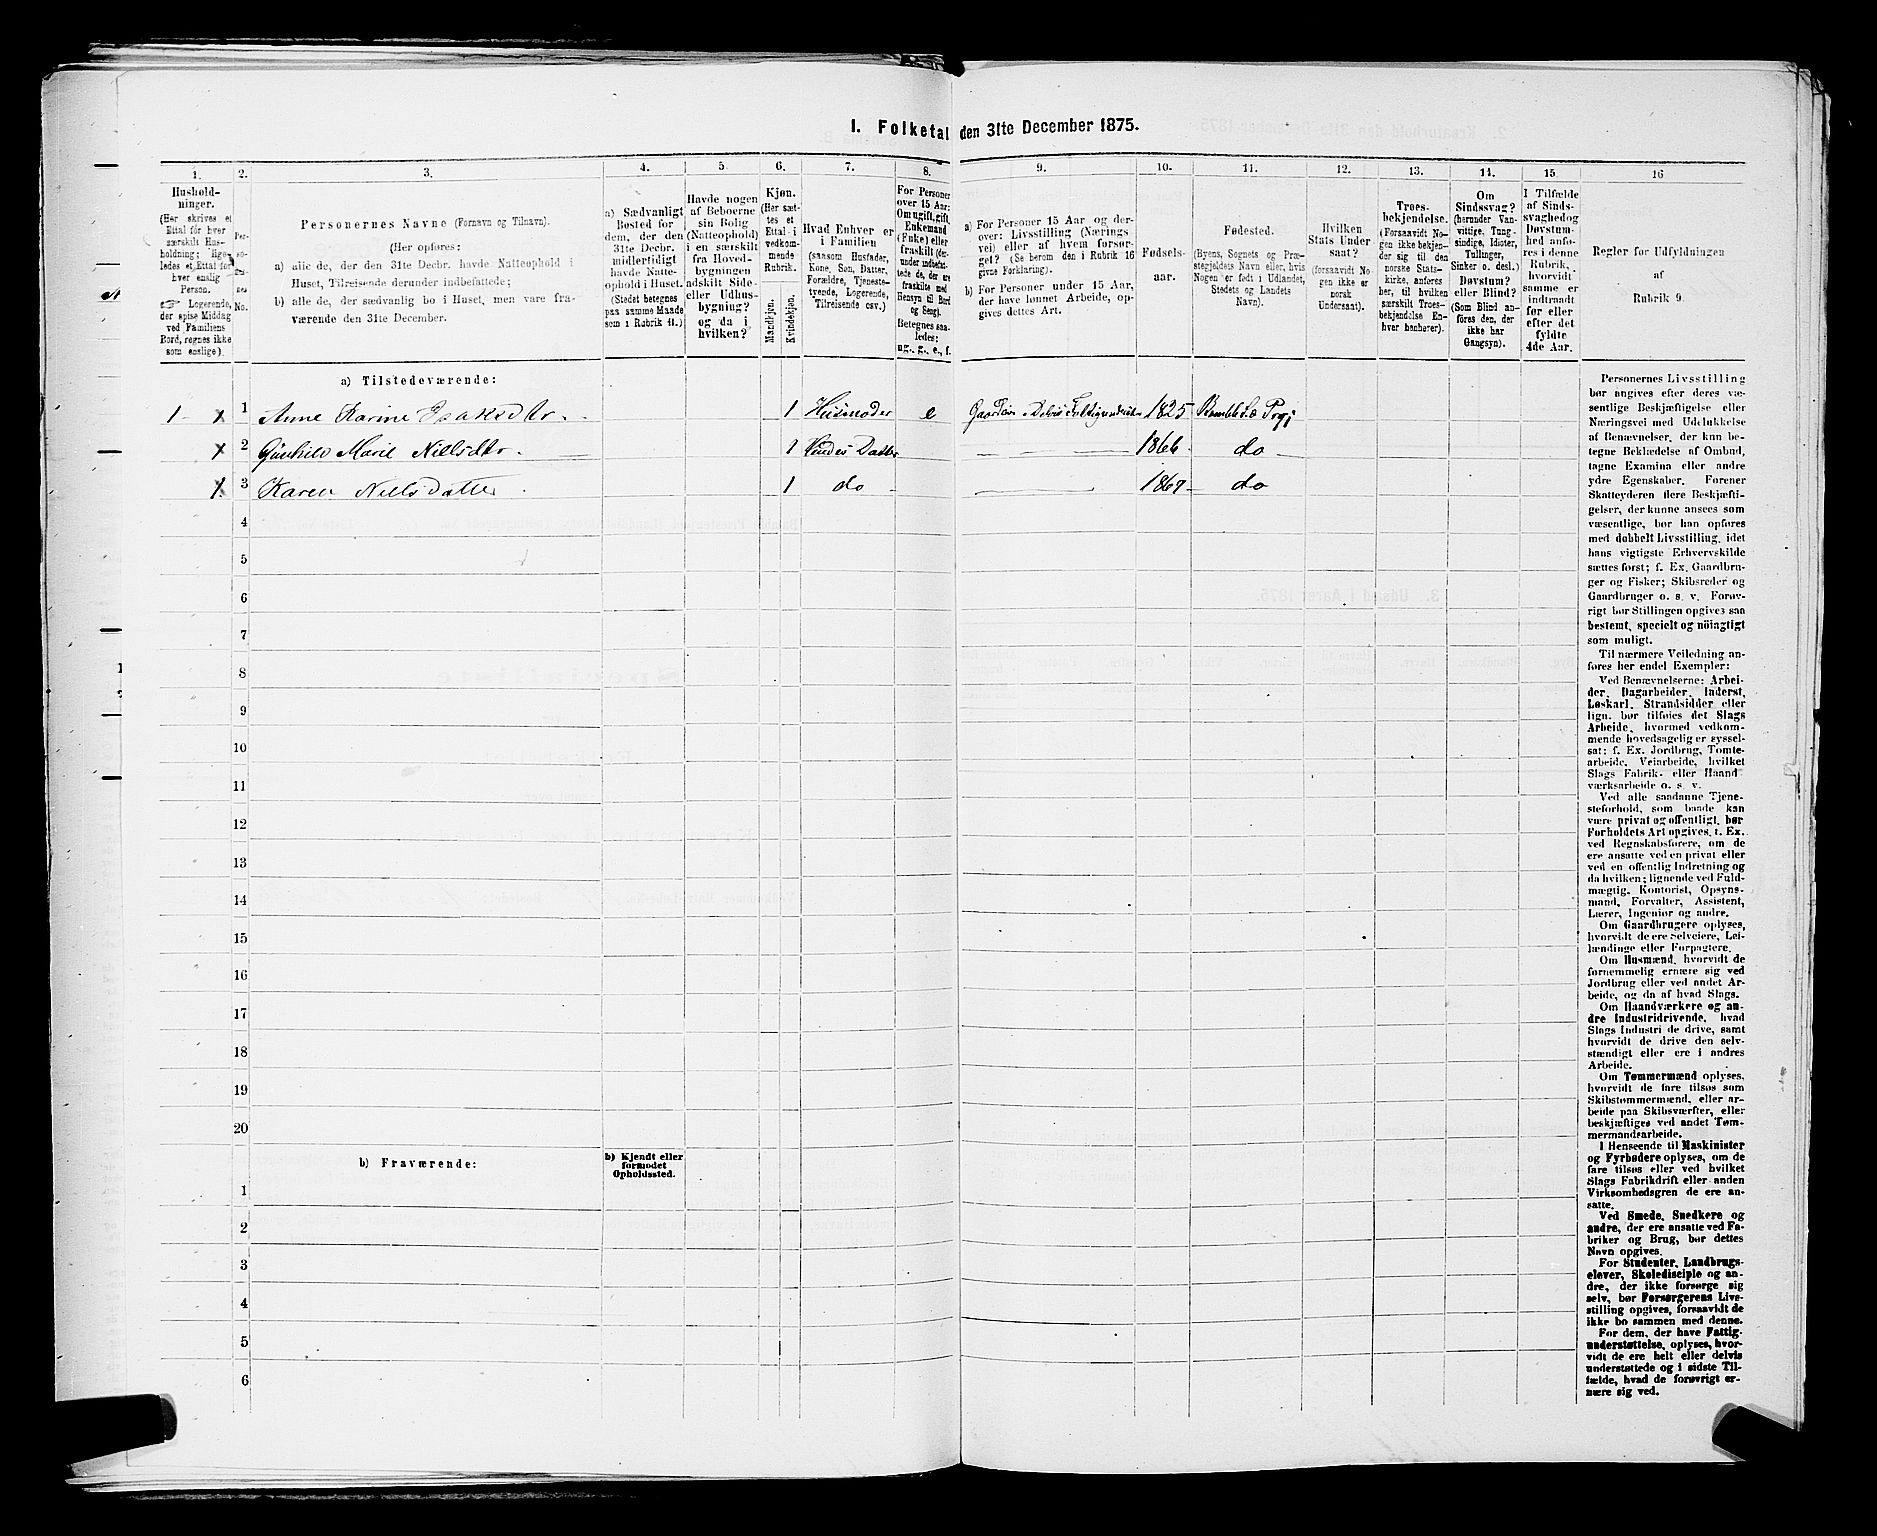 I. Folketal den 31te December 1875.
1.
2.
3.
4.
5.
6.
7.
8.
9.
10.
11.
12.
13.
14.
15
16
Hushold-
ninger.
(Her skrives et
Ettal for hver
særskilt Hus-
holdning; lige-
ledes et Ettal for
hver enslig
Person.
☞ Logerende,
der spise Middag
ved Familiens
Bord, regnes ikke
som enslige).
Per-
so-
ner-
nes
No.
Personernes Navne (Fornavn og Tilnavn).
(Her opføres:
a) alle de, der den 31te Decbr. havde Natteophold i
Huset, Tilreisende derunder indbefattede;
b) alle de, der sædvanlig bo i Huset, men vare fra-
værende den 31te December.
a) Sædvanligt
Bosted for
dem, der den
31te Decbr.
midlertidigt
havde Natte-
ophold i Huset.
(Stedet betegnes
paa samme Maade
som i Rubrik 11.)
Havde nogen
af Beboerne
sin Bolig
(Natteophold)
i en særskilt
fra Hoved-
bygningen
adskilt Side-
eller Udhus-
bygning?
og da i
hvilken?
Kjøn.
(Her sæt-
tes et
Ettal i
vedkom-
mende
Rubrik.
Mandkjøn.
Kvindekjøn.
Hvad Enhver er
i Familien
(saasom Husfader,
Kone, Søn, Datter,
Forældre, Tjeneste-
tyende, Logerende,
Tilreisende osv.)
For Personer
over 15 Aar:
Om ugift, gift,
Enkemand
(Enke) eller
fraskilt (der-
under indbefat-
tede de, der ere
fraskilte med
Hensyn til Bord
og Seng).
Betegnes saa-
ledes:
ug., g., e., f.
a) For Personer 15 Aar og der-
over: Livsstilling (Nærings-
vei) eller af hvem forsør-
get? (Se herom den i Rubrik 16
givne Forklaring).
b) For Personer under 15 Aar,
der have lønnet Arbeide, op-
gives dettes Art.
Fødsels-
aar.
Fødested.
(Byens, Sognets og Præ-
stegjeldets Navn eller, hvis
Nogen er født i Udlandet,
Stedets og Landets
Navn).
Hvilken
Stats Under
saat?
(forsaavidt No-
gen ikke er
norsk
Undersaat).
Troes-
bekjendelse.
(Forsaavidt No-
gen ikke bekjen-
der sig til den
norske Stats-
kirke, anføres
her, til hvilken
særskilt Troes-
bekjendelse En-
hver henhører).
Om
Sindssvag?
(herunder Van-
vittige, Tung-
sindige, Idioter,
Tullinger,
Sinker o. desl.)
Døvstum?
eller Blind?
(Som Blind an-
føres den, der
ikke har
Gangsyn).
I Tilfælde
af Sinds-
svaghed og
Døvstum-
hed anfø-
res i denne
Rubrik,
hvorvidt
samme er
indtraadt
før eller
efter det
fyldte
4de Aar.
Regler for Udfyldningen
af
Rubrik 9.
a) Tilstedeværende:
1 x 1 Anne Karine Isaksdtr. 1 Husmoder e 1825 Bamble S. & Prgj
x 2 Gunhild Marie Nielsdtr. 1 Hendes Datter — 1866 do
x 3 Karen Nielsdatter 1 do — 1869 do
4
5
6
7
8
9
10
11
12
13
14
15
16
17
18
19
20
b) Fraværende:
b) Kjendt eller
formodet
Opholdssted.
1
2
3
4
5
6
Personernes Livsstilling
bør angives efter deres væ-
sentlige Beskjæftigelse eller
Næringsvei med Udelukkelse
af Benævnelser, der kun be-
tegne Beklædelse af Ombud,
tagne Examina eller andre
ydre Egenskaber. Forener
Skatteyderen flere Beskjæfti-
gelser, der kunne ansees som
væsentlige, bør han opføres
med dobbelt Livsstilling, idet
hans vigtigste Erhvervskilde
sættes først; f. Ex. Gaardbru-
ger og Fisker; Skibsreder og
Gaardbruger o. s. v. Forøv-
rigt bør Stillingen opgives saa
bestemt, specielt og nöiagtigt
som muligt.
Til nærmere Veiledning an-
føres her endel Exempler:
Ved Benævnelserne: Arbei-
der, Dagarbeider, Inderst,
Løskarl, Strandsidder eller
lign. bør tilføies det Slags
Arbeide, hvormed vedkom-
mende hovedsagelig er syssel-
sat; f. Ex. Jordbrug, Tomte-
arbeide, Veiarbeide, hvilket
Slags Fabrik- eller Haand
værksarbeide o. s. v.
Ved alle saadanne Tjene-
steforhold, som baade kan
være privat og offentligt, bør
Forholdets Art opgives, t. Ex.
ved Regnskabsførere, om de
ere ansatte ved en privat eller
ved en offentlig Indretning og
da hvilken; lignende ved Fuld-
mægtig, Kontorist, Opsyns-
mand, Forvalter, Assistent,
Lærer, Ingeniør og andre.
Om Gaardbrugere oplyses,
hvorvidt de ere Selveiere, Lei-
lændinge eller Forpagtere.
Om Husmænd, hvorvidt de
fornemmelig ernære sig ved
Jordbrug eller ved andet Ar-
beide, og da af hvad Slags.
Om Haandværkere og an-
dre Industridrivende, hvad
Slags Industri de drive, samt
hvorvidt de drive den selv-
stændigt eller ere i andres
Arbeide.
Om Tømmermænd oplyses,
hvorvidt de fare tilsøs som
Skibstømmermænd, eller ar-
beide paa Skibsværfter, eller
beskjæftiges ved andet Tøm-
mermandsarbeide.
I Henseende til Maskinister
og Fyrbødere oplyses, om de
fare tilsøs eller ved hvilket
Slags Fabrikdrift eller anden
Virksomhedsgren de ere an-
satte.
Ved Smede, Snedkere og
andre, der ere ansatte ved Fa-
briker og Brug, bør dettes
Navn opgives.
For Studenter, Landbrugs-
elever, Skoledisciple og an-
dre, der ikke forsørge sig
selv, bør Forsørgerens Livs-
stilling opgives, forsaavidt de
ikke bo sammen med denne.
For dem, der have Fattig-
understøttelse, oplyses, hvor-
vidt de ere helt eller delvis
understøttede og i sidste Til-
fælde, hvad de forøvrigt er-
nære sig ved.